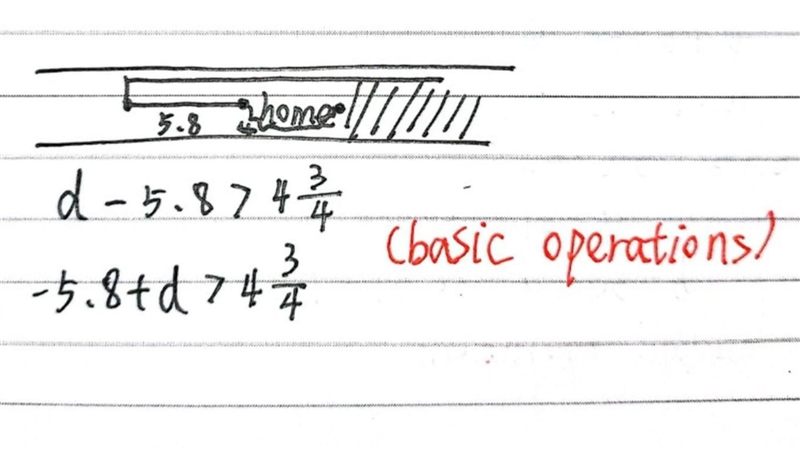 5.8 home
d - 5.8 > 4 3/4
(basic operations)
-5.8 + d > 4 3/4